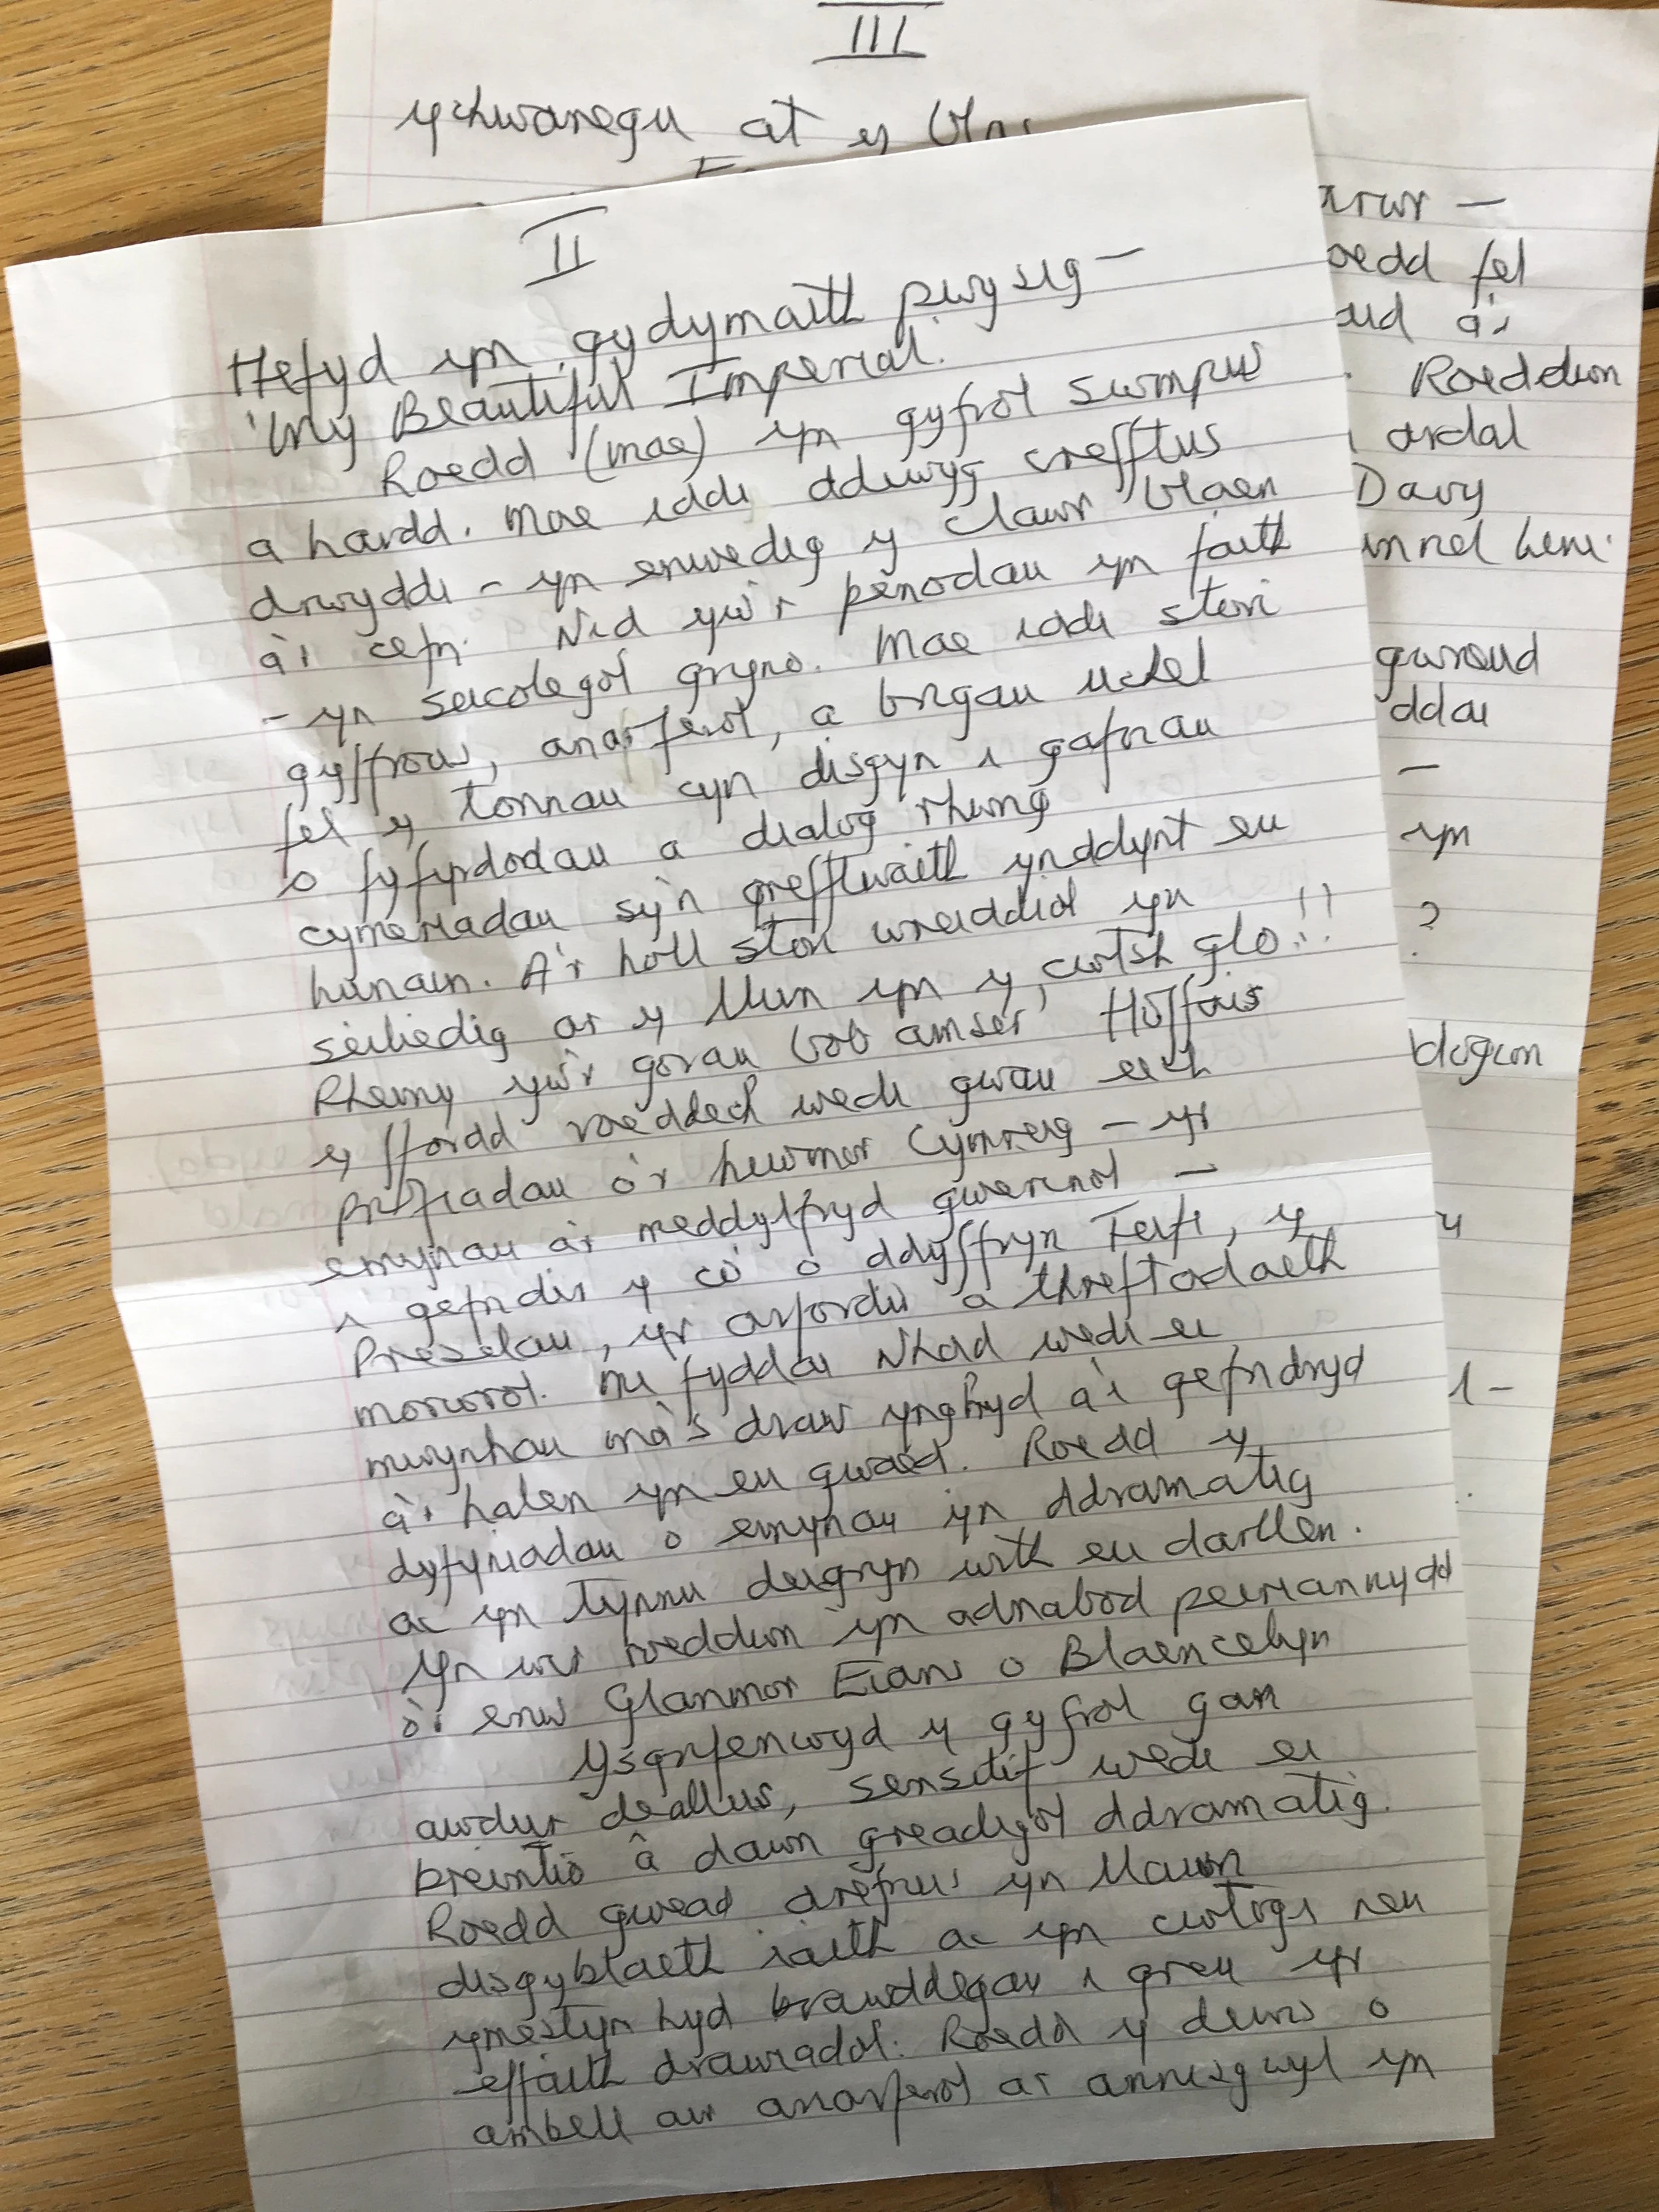 III
ychwanegu at y
II
Hefyd yn gydymaith pwysig –
'My Beautiful Imperial.
Roedd (mae) yn gyfrol swmpus
a hardd. Mae iddi ddiwyg crefftus
drwyddi – yn enwedig y clawr blaen
a'i cefn. Nid yw'r penodau yn faith
– yn seicolegol gryno. Mae iddi stori
gyffrous, anarferol, a brigau uchel
fel y tonnau cyn disgyn i gafnau
o fyfyrdodau a dialog rhwng
cymeriadau sy'n grefftwaith ynddynt eu
hunain. A'r holl stori wreiddiol yn
seiliedig ar y llun yn y 'cwtsh glo'!!
Rheiny yw'r gorau bob amser! Hoffais
y ffordd roeddech wedi gwau eich
profiadau o'r hiwmor Cymreig – yr
emynau a'r meddylfryd gwerinol –
i gefndir y co' o ddyffryn Teifi, y
Preselau, yr arfordir a threftadaeth
morwrol. Mi fyddai Nhad wedi ei
mwynhau ma's draw ynghyd a'i gefndryd
a'i halen yn eu gwaed. Roedd y
dyfyniadau o emynau yn ddramatig
ac yn tynnu deigryn wrth eu darllen.
Yn wir roeddwn yn adnabod peiriannydd
o'i enw Glanmor Evans o Blaencelyn
Ysgrifenwyd y gyfrol gan
awdur deallus, sensitif wedi ei
breintio â dawn greadigol ddramatig.
Roedd gwead drefnus yn llawn
disgyblaeth iaith ac yn cwtogi neu
ymestyn hyd brawddegau i greu yr
effaith drawiadol. Roedd y dewis o
ambell air anarferol ar annisgwyl yn
arwr –
oedd fel
aid a'i
Roeddwn
ardal
Davy
gwneud
ddai
–
yn
?
digwn
y